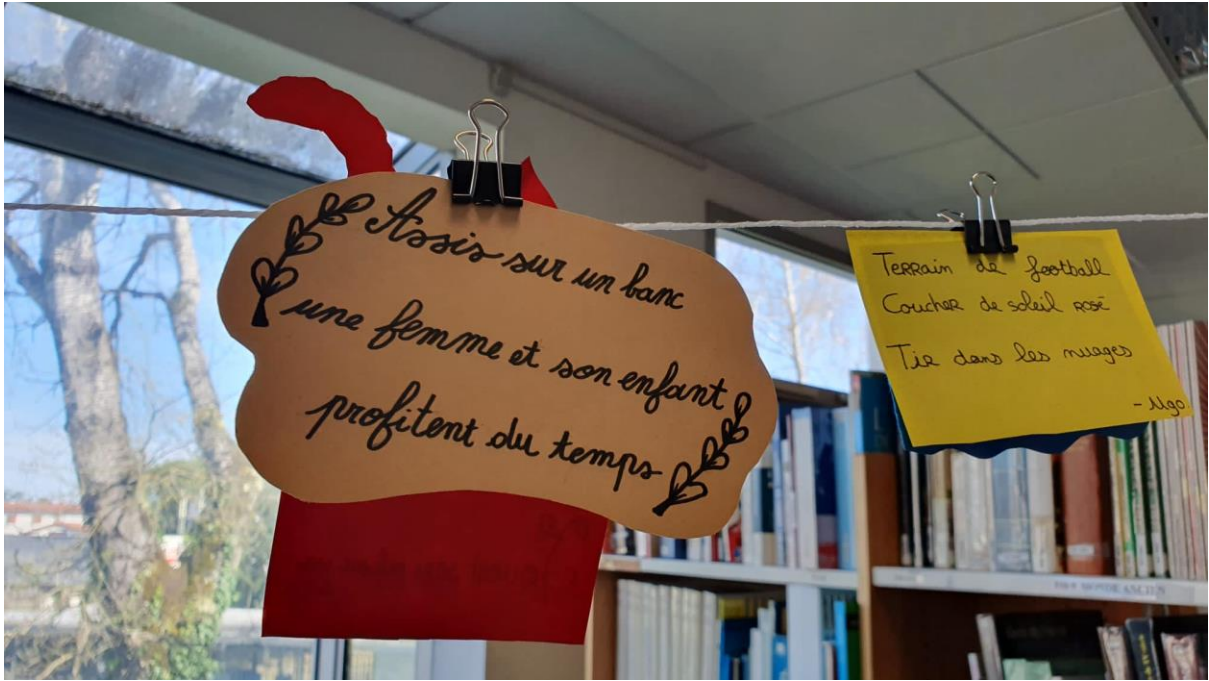 Assis sur un banc
une femme et son enfant
profitent du temps
Terrain de football
Coucher de soleil rosé
Tir dans les nuages
MONDE ANCIEN